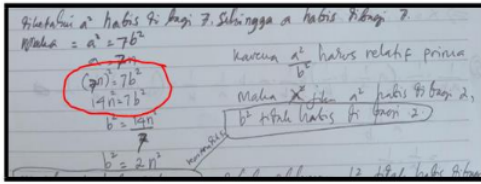 diketahui a² habis di bagi 7. Sehingga a habis dibagi 7.
Maka = a² = 7b²
a = 7n
(7n)² = 7b²
14n² = 7b²
b² = 14n²
7
b² = 2n²
karena a²/b² harus relatif prima
Maka jika a² habis di bagi 2,
b² tidak habis di bagi 2.